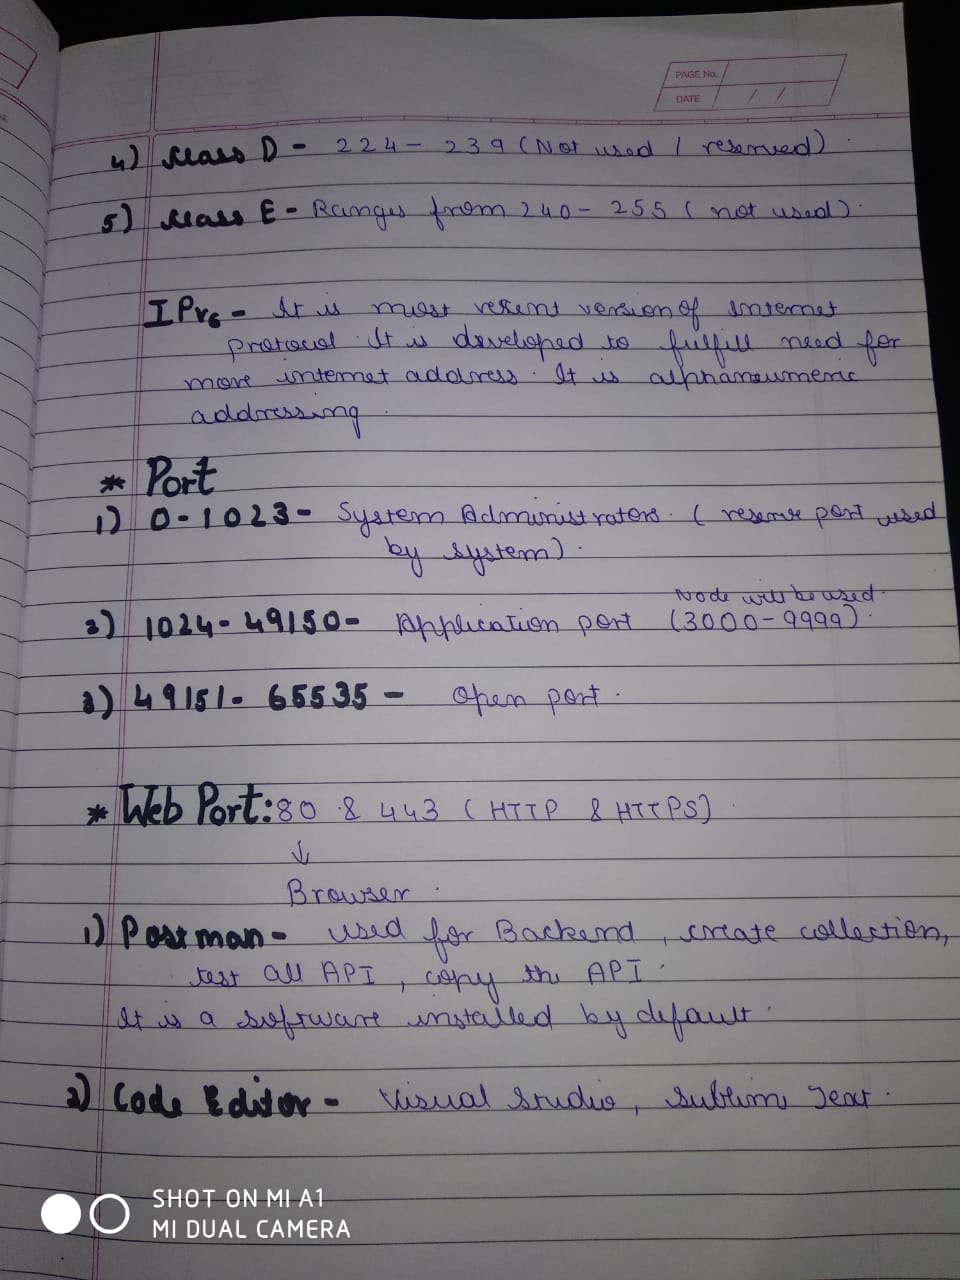 PAGE No.
DATE / /
4) Class D - 224 - 239 (Not used / reserved).
5) Class E - Ranges from 240 - 255 (not used).
IPv6 - It is most resent version of Internet
protocol. It is developed to fulfill need for
more internet address. It is alphaneumeric
addressing.
* Port
1) 0-1023- System Administrators. (reserve port used
by system).
Node will be used.
2) 1024-49150- Application port (3000-9999).
3) 49151-65535 - Open port.
* Web Port: 80 & 443 (HTTP & HTTPS)
↓
Browser.
1) Postman - used for Backend, create collection,
test all API, copy the API.
It is a software installed by default.
2) Code Editor - Visual Studio, Sublim Text.
SHOT ON MI A1
MI DUAL CAMERA